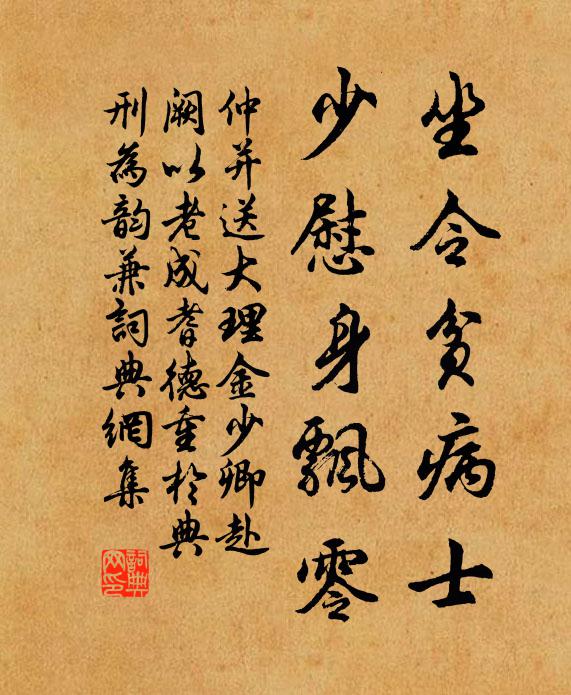 坐令貧病士
少慰身飄零
仲并送大理金少卿赴
闕以老成耆德重於典
刑為韵兼詞典網集
詞典
网印